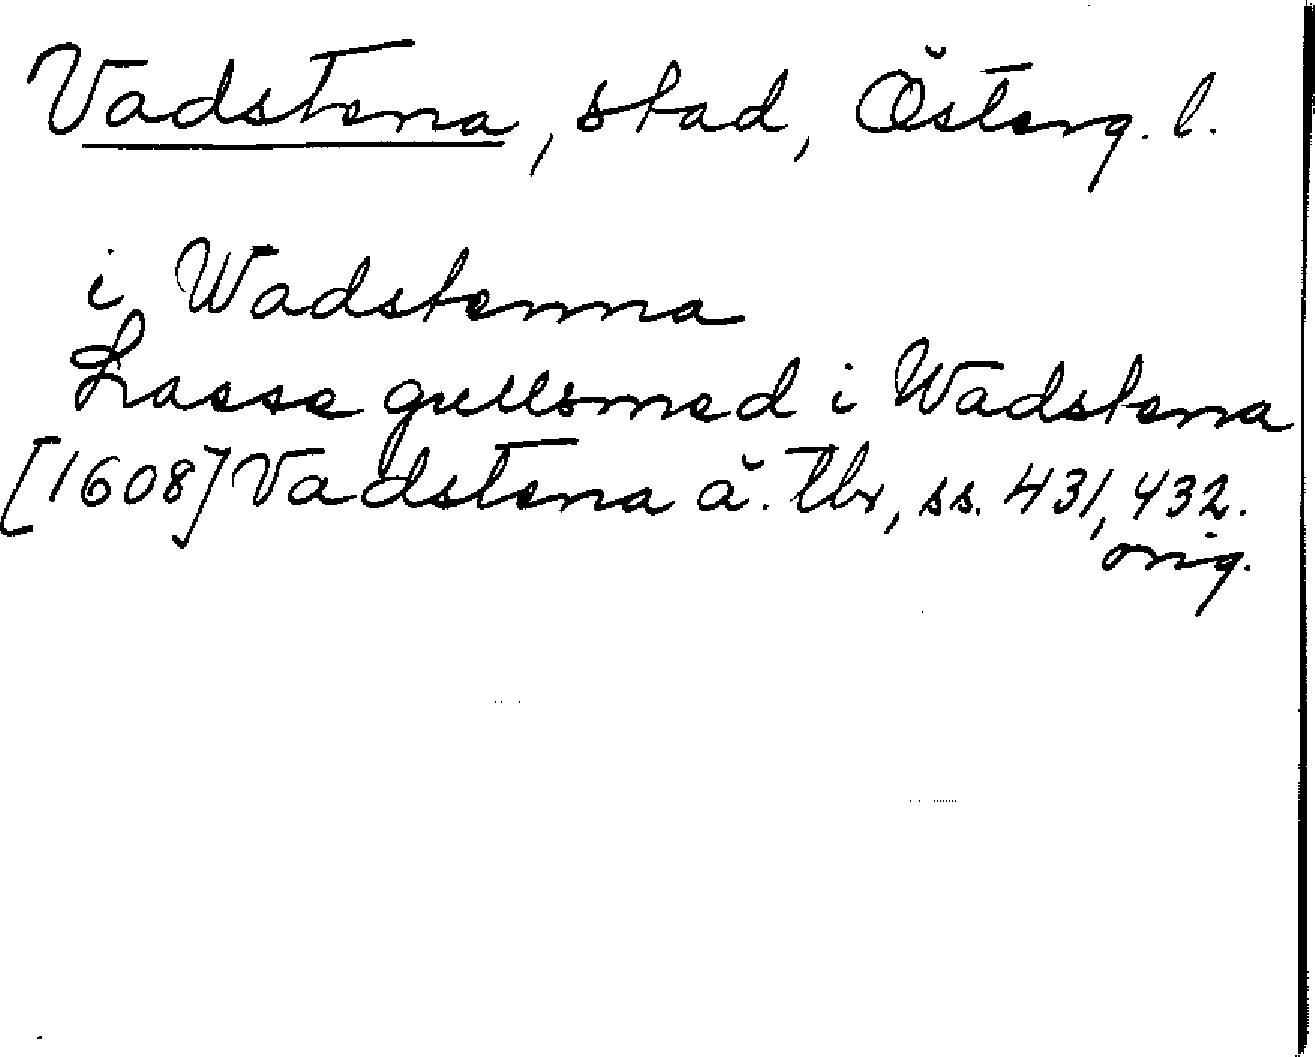 Vadstena, stad, Österg. l.
i Wadstenna
Lasse gullsmed i Wadstena
[1608] Vadstena ä. tbr, ss. 431, 432.
orig.